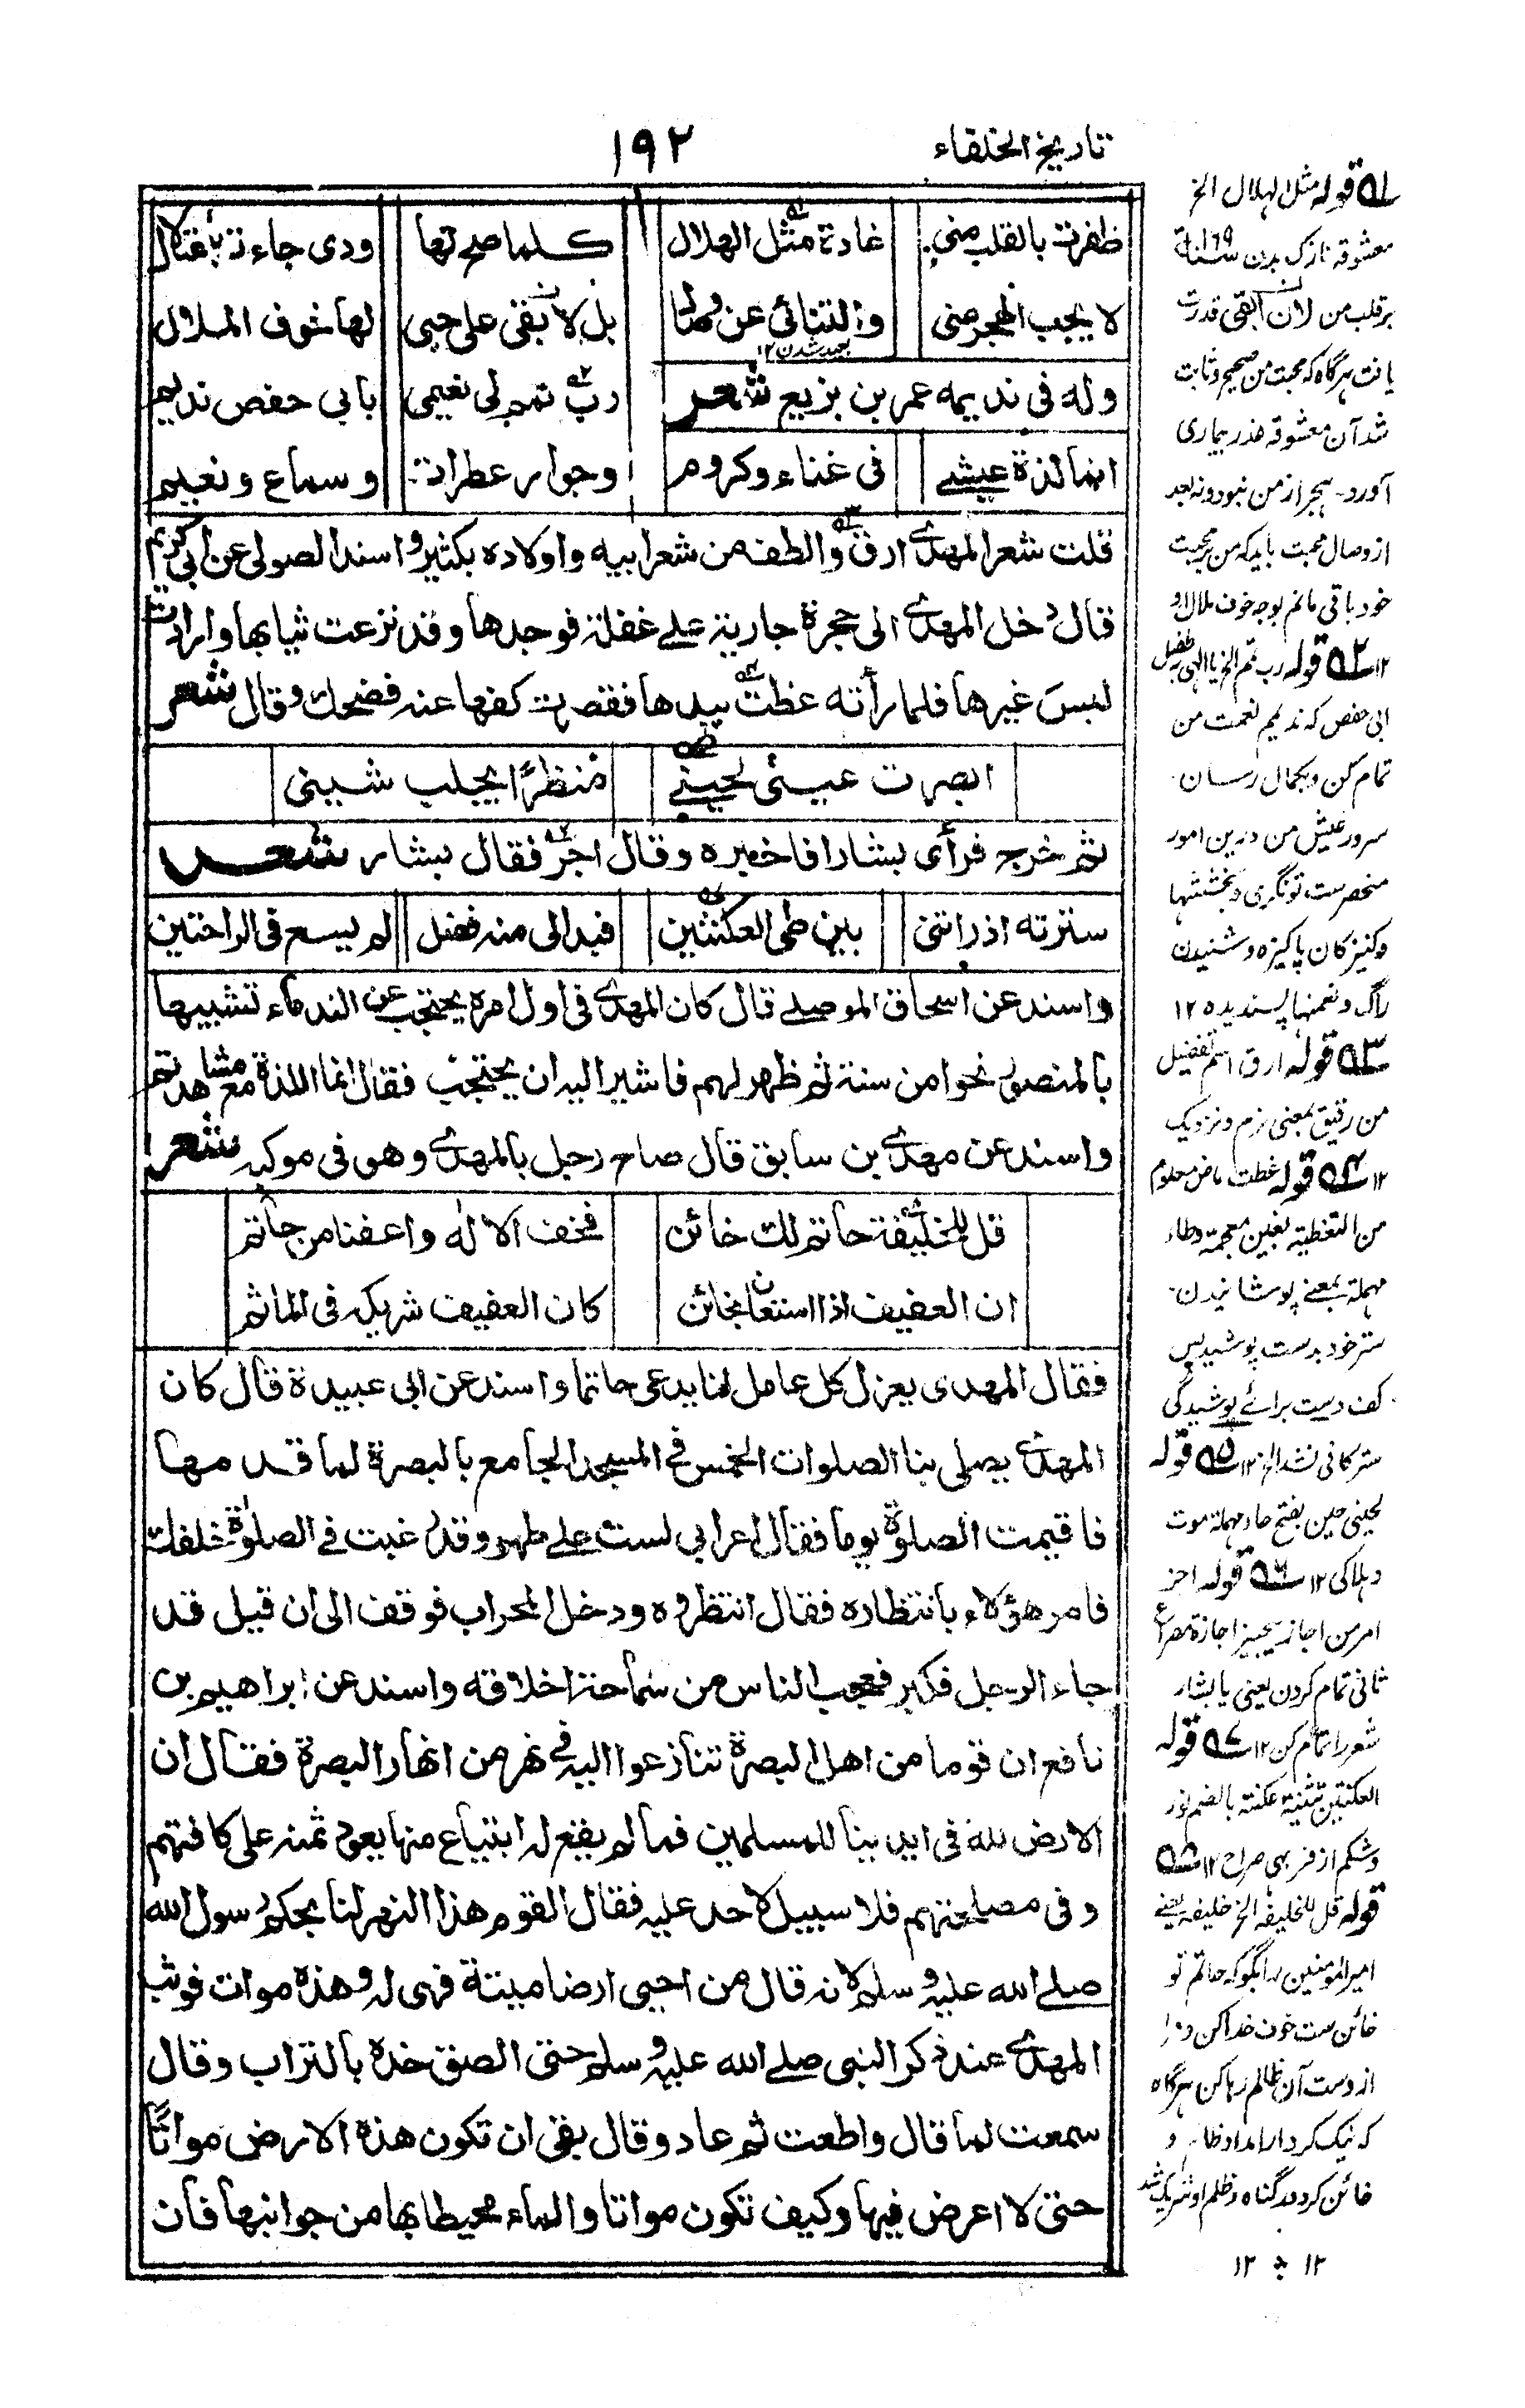 تاريخ الخلفاء
١٩٢
ظفرت بالقلب مني غادة مثل الهلال كلما صح لها ودى جاءت باعتلال
لا يحب الهجر مني والتنائى عن وصال بل لابقى على حبى لها خوف الملال
بعید شدن ١٢
وله فى نديمه عمر بن بزيع شعر
رب تمم لى نعيمى بابى حفص نديم
انما لذة عيشے فى غناء وكروم وجوار عطرات وسماع ونعيم
قلت شعر المهدے ارق والطف من شعر ابيه واولاده بكثير واسند الصولى عن ابى كريم
قال دخل المهدے الى حجرة جارية علے غفلة فوجدها وقد نزعت ثيابها وارادت
لبس غيرها فلما رأته غطت بيدها فقصرت كفها عنه فضحك وقال شعر
ابصرت عينى لحينے منظرًا يجلب شينى
ثم خرج فرأى بشارا فاخبره وقال اجز فقال بشار شعر
سترته اذ راتنى بين طى العكنتين فبدا لى منه فضل لم يسع فى الراحتين
واسند عن اسحاق الموصلے قال كان المهدے فى اول امره يحتجب عن الندماء تشبيها
بالمنصور نحوا من سنة ثم ظهر لهم فاشير اليه ان يحتجب فقال انما اللذة مع مشاهدتهم
واسند عن مهدے بن سابق قال صاح رجل بالمهدے وهو فى موكبه شعر
قل للخليفة حاتم لك خائن فخف الاله واعفنا من حاتم
ان العفيف اذا استعان بخائن كان العفيف شريكه فى الماثم
فقال المهدى يعزل كل عامل لنا يدعى حاتما واسند عن ابى عبيدة قال كان
المهدے يصلى بنا الصلوات الخمس فے المسجد الجامع بالبصرة لما قدمها
فاقيمت الصلوة يوما فقال اعرابى لست علے طهر وقد رغبت فے الصلوة خلفك
فامر هؤلاء بانتظاره فقال انتظروه ودخل المحراب فوقف الى ان قيل قد
جاء الرجل فكبر فعجب الناس من سماحة اخلاقه واسند عن ابراهيم بن
نافع ان قوما من اهل البصرة تنازعوا اليه فے نهر من انهار البصرة فقال ان
الارض لله فى ايدينا للمسلمين فما لم يقع له ابتياع منها يعود ثمنه على كافتهم
وفى مصلحتهم فلا سبيل لاحد عليه فقال القوم هذا النهر لنا بحكم رسول الله
صلے الله عليه وسلم لانه قال من احيى ارضا ميتة فهى له وهذه موات فوثب
المهدے عند ذكر النبى صلے الله عليه وسلم حتى الصق خده بالتراب وقال
سمعت لما قال واطعت ثم عاد وقال بقى ان تكون هذه الارض مواتًا
حتى لا اعرض فيها وكيف تكون مواتا والماء محيط بها من جوانبها فان
٥١ قوله مثل الهلال الخ
معشوقه نازک بدن
برقلب من لان ابقى قدرت
یافت ہرگاہ کہ محبت من صحیح وثابت
شد آن معشوقہ عذر بیماری
آورد ہجر از من نبود ونہ بعد
از وصال محبت بلکہ من بر محبت
خود باقی مانم بوجہ خوف ملال او
١٢ ٥٢ قوله رب تمم الخ یا الہی بہ طفیل
ابی حفص کہ ندیم نعمت من
تمام کن وبکمال رسان
سرور عیش من درین امور
منحصرست تونگری وبخششها
وکنیزکان پاکیزه وشنیدن
راگ ونعمتها پسندیده ١٢
٥٣ قوله ارق اسم تفضيل
من رقیق بمعنی نرم ونزدیک
١٢ ٥٤ قوله غطت ماض معلوم
من التغطیة بغین معجمة وطاء
مهملة بمعنے پوشانیدن
ستر خود بدست پوشید پس
کف دست برائے پوشیدگی
ستر کافی نشد الخ ١٢ ٥٥ قوله
لحينى حين بفتح حاء مهمله موت
وہلاکی ١٢ ٥٦ قوله اجز
امر من اجاز يجيز اجازة مصراع
ثانی تمام کردن یعنی یا بشار
شعر را تمام کن ١٢ ٥٧ قوله
العكنتين تثنية عكنة بالضم نورد
وشکم از فربهی صراح ١٢ ٥٨
قوله قل للخليفة الخ خلیفہ یعنے
امیر المومنین را بگو کہ حاتم تو
خائن ست خوف خدا کن
از دست آن ظالم رہا کن ہرگاہ
کہ نیک کردار امداد ظالم و
خائن کرد در گناہ وظلم او شریک شد
١٢ ١٢